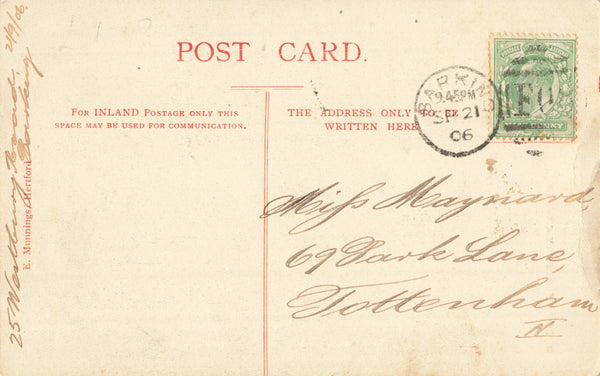 POST CARD.
FOR INLAND POSTAGE ONLY THIS
SPACE MAY BE USED FOR COMMUNICATION.
THE ADDRESS ONLY TO BE
WRITTEN HERE
BARKING
9.45PM
SP 21
06
Miss Maynard
69 Park Lane,
Tottenham
N
E. Munnings, Hertford
25 Westbury Road
Barking
21/9/06.